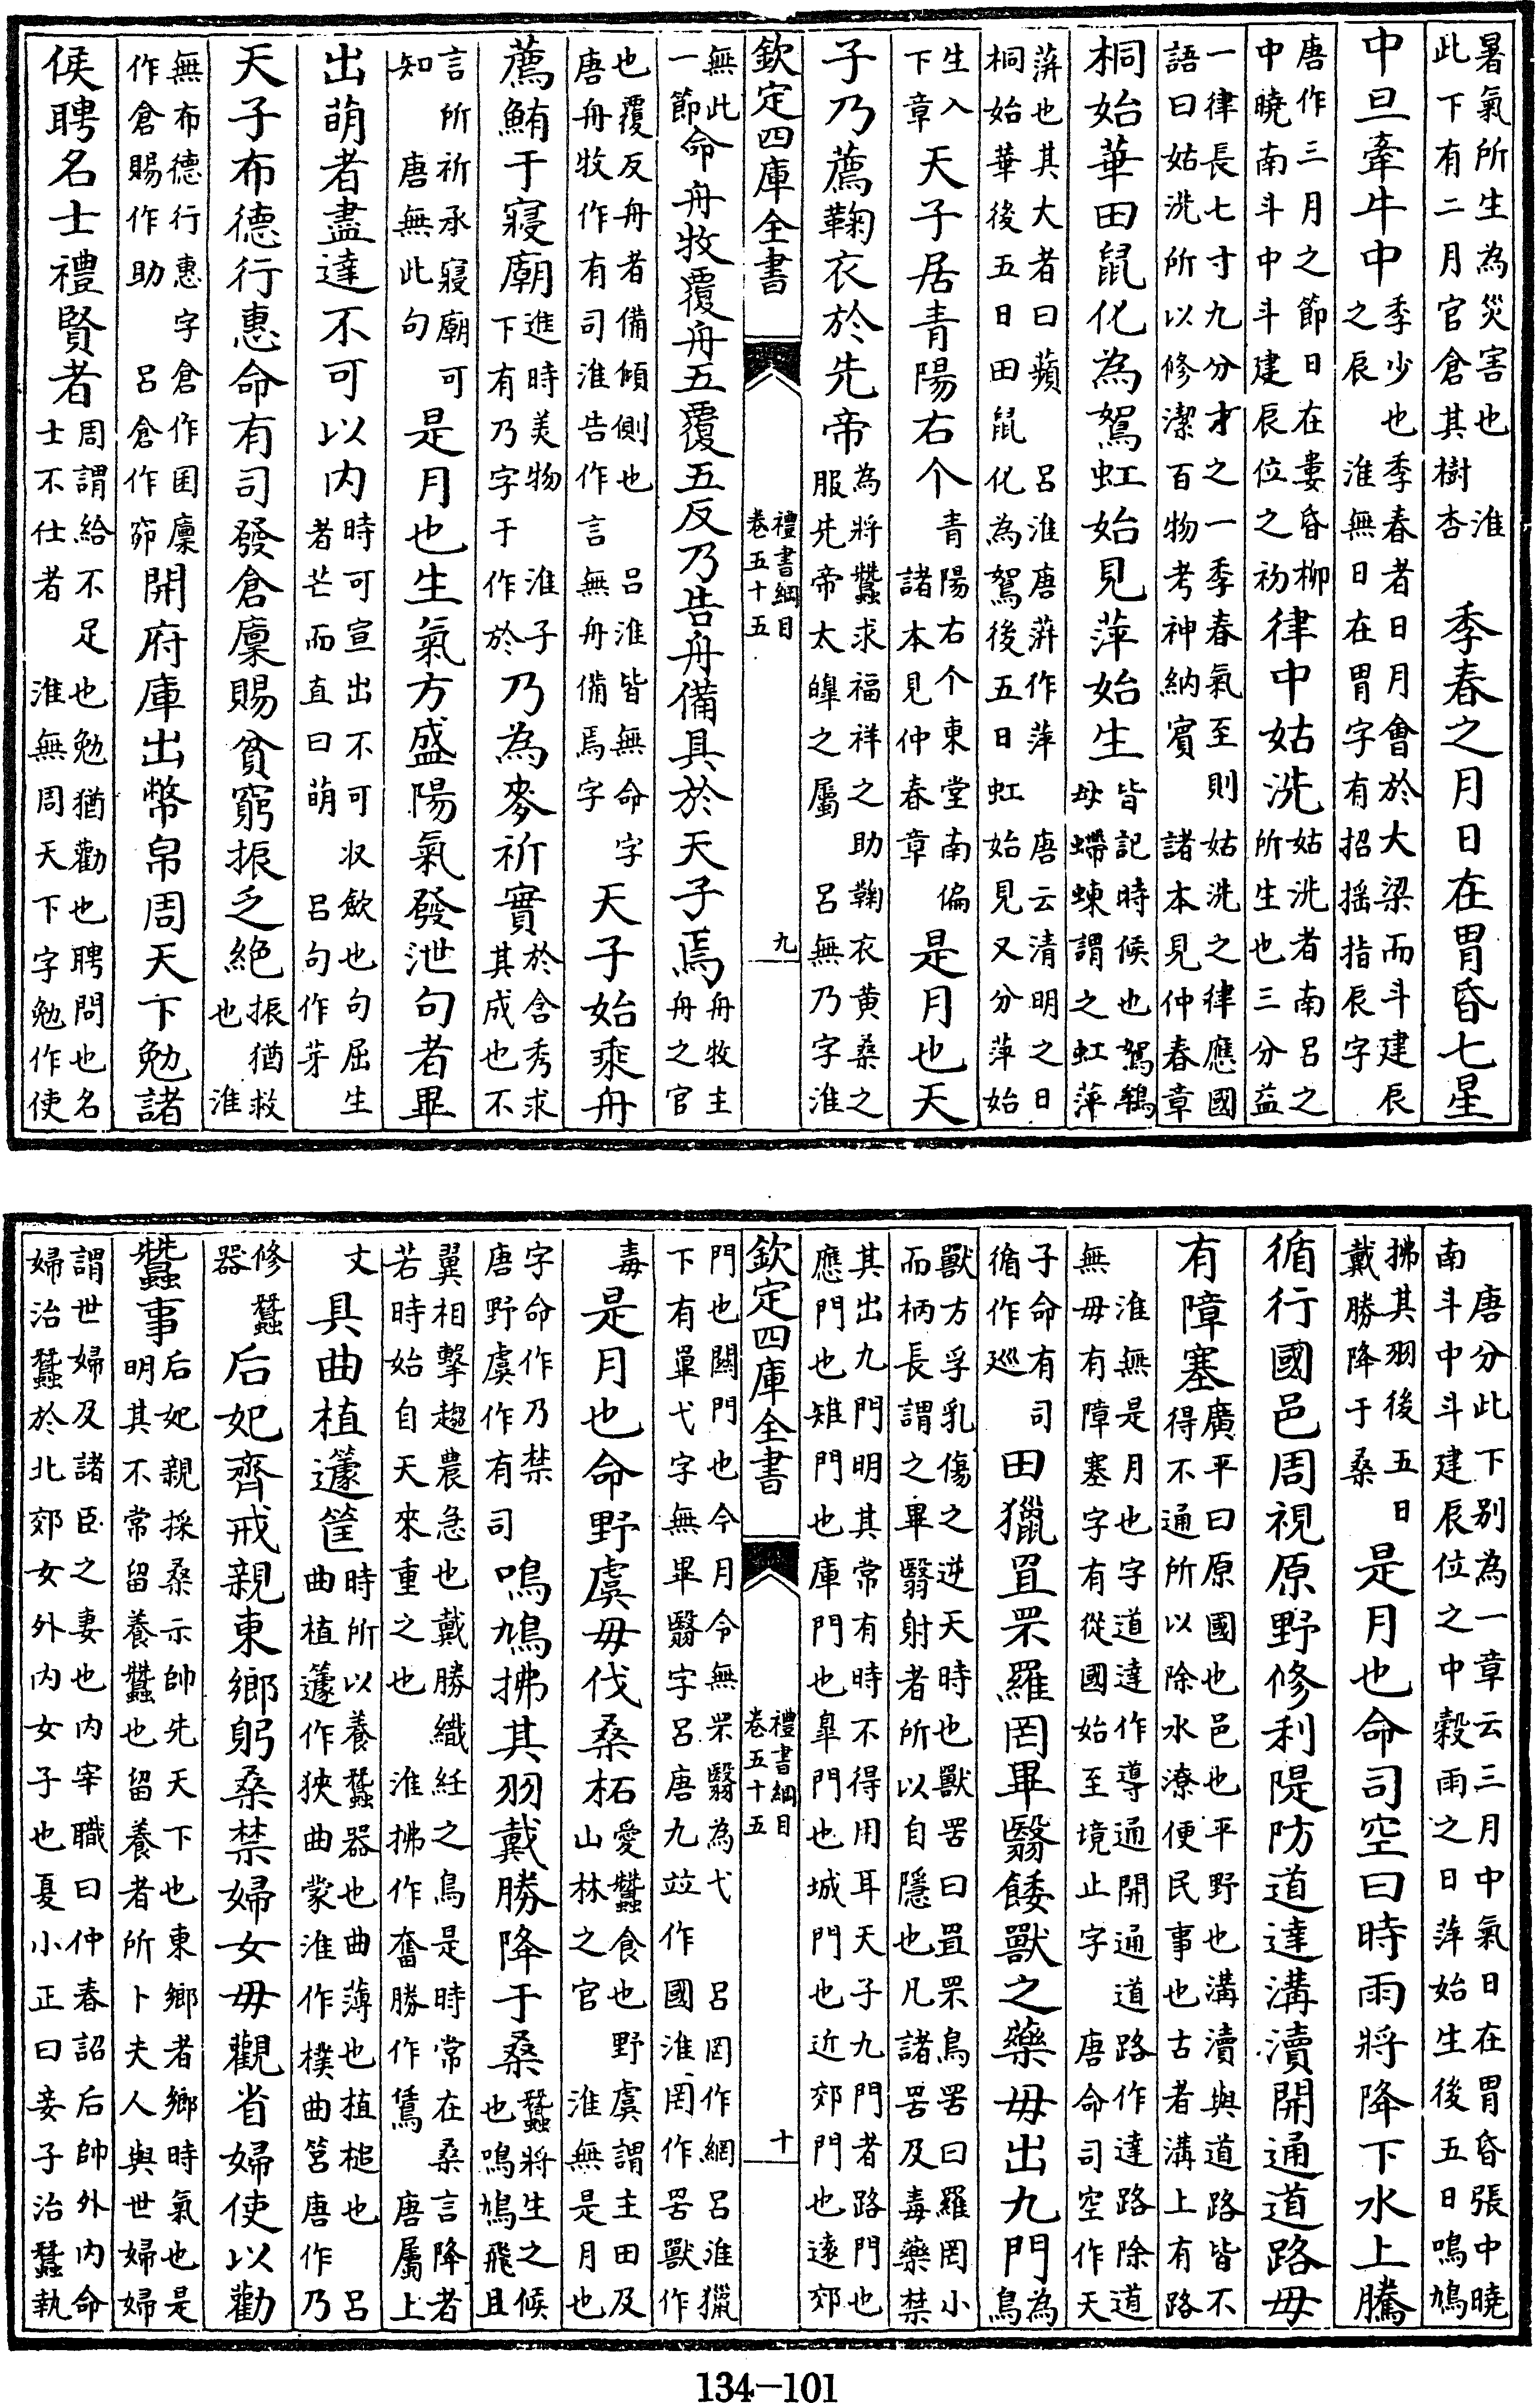 暑氣所生為災害也淮此下有二月官倉其樹杏季春之月日在胃昏七星
中旦牽牛中季少也季春者日月會於大梁而斗建辰之辰淮無日在胃字有招搖指辰字
唐作三月之節日在婁昏柳中曉南斗中斗建辰位之初律中姑洗姑洗者南呂之所生也三分益
一律長七寸九分才之一季春氣至則姑洗之律應國語曰姑洗所以修潔百物考神納賓諸本見仲春章
桐始華田鼠化為鴽虹始見萍始生皆記時候也鴽鴾母蝃蝀謂之虹萍
蓱也其大者曰蘋呂淮唐蓱作萍唐云清明之日桐始華後五日田鼠化為鴽後五日虹始見又分萍始
生入下章天子居青陽右个青陽右个東堂南偏諸本見仲春章是月也天
子乃薦鞠衣於先帝為將蠶求福祥之助鞠衣黃桑之服先帝太皥之屬呂無乃字淮
欽定四庫全書 禮書綱目卷五十五 九
無此一節命舟牧覆舟五覆五反乃告舟備具於天子焉舟牧主舟之官
也覆反舟者備傾側也呂淮皆無命字唐舟牧作有司淮告作言無舟備焉字天子始乘舟
薦鮪于寢廟進時美物淮子下有乃字于作於乃為麥祈實於含秀求其成也不
言所祈承寢廟可知唐無此句是月也生氣方盛陽氣發泄句者畢
出萌者盡達不可以内時可宣出不可収斂也句屈生者芒而直曰萌呂句作芽
天子布德行惠命有司發倉廩賜貧窮振乏絕振猶救也淮
無布德行惠字倉作囷廩作倉賜作助呂倉作窌開府庫出幣帛周天下勉諸
侯聘名士禮賢者周謂給不足也勉猶勸也聘問也名士不仕者淮無周天下字勉作使
唐分此下别為一章云三月中氣日在胃昏張中曉南斗中斗建辰位之中穀雨之日萍始生後五日鳴鳩
拂其羽後五日戴勝降于桑是月也命司空曰時雨將降下水上騰
循行國邑周視原野修利隄防道達溝瀆開通道路毋
有障塞廣平曰原國也邑也平野也溝瀆與道路皆不得不通所以除水潦便民事也古者溝上有路
淮無是月也字道達作導通開通道路作達路除道無毋有障塞字有從國始至境止字唐命司空作天
子命有司循作巡田獵罝罘羅罔畢翳餧獸之藥毋出九門為鳥
獸方孚乳傷之逆天時也獸罟曰罝罘鳥罟曰羅罔小而柄長謂之畢翳射者所以自隱也凡諸罟及毒藥禁
其出九門明其常有時不得用耳天子九門者路門也應門也雉門也庫門也臯門也城門也近郊門也遠郊
欽定四庫全書 禮書綱目卷五十五 十
門也關門也今月令無罘翳為弋呂罔作網呂淮獵下有罼弋字無畢翳字呂唐九竝作國淮罔作罟獸作
毒是月也命野虞毋伐桑柘愛蠶食也野虞謂主田及山林之官淮無是月也
字命作乃禁唐野虞作有司鳴鳩拂其羽戴勝降于桑蠶將生之候也鳴鳩飛且
翼相擊趨農急也戴勝織紝之鳥是時常在桑言降者若時始自天來重之也淮拂作奮勝作鵀唐屬上
文具曲植籧筐時所以養蠶器也曲薄也植槌也呂曲植籧作挾曲蒙淮作樸曲筥唐作乃
修蠶器后妃齊戒親東鄉躬桑禁婦女毋觀省婦使以勸
蠶事后妃親採桑示帥先天下也東鄉者鄉時氣也是明其不常留養蠶也留養者所卜夫人與世婦婦
謂世婦及諸臣之妻也内宰職曰仲春詔后帥外内命婦治蠶於北郊女外内女子也夏小正曰妾子治蠶執
134-101